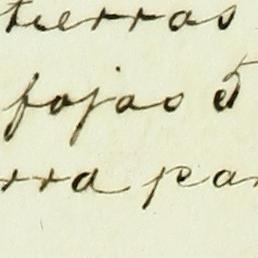 tierras
fojas 5
rra par